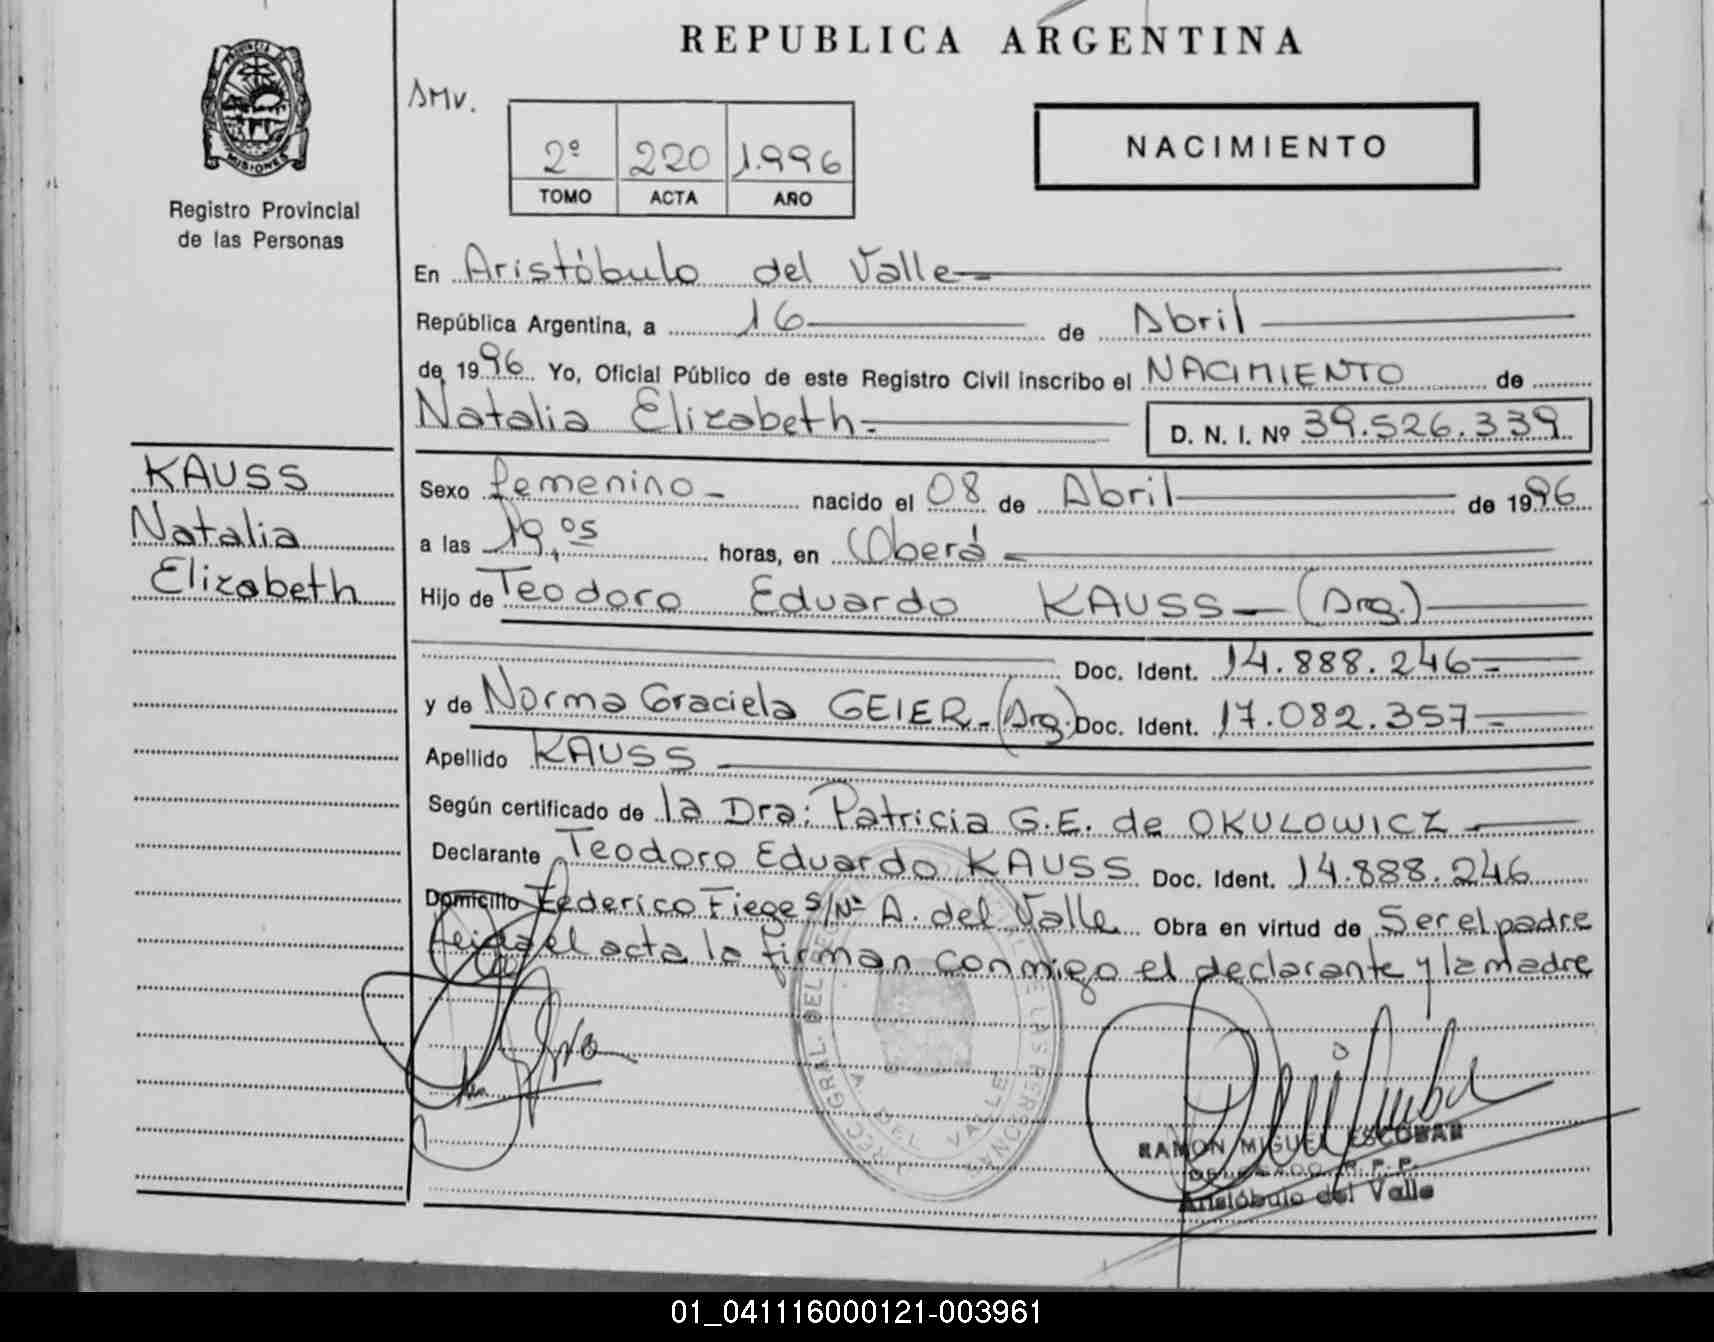 REPUBLICA ARGENTINA
PROVINCIA DE
MISIONES
Registro Provincial
de las Personas
AMV.
2º 220 1.996
TOMO ACTA AÑO
NACIMIENTO
En Aristóbulo del Valle
República Argentina, a 16 de Abril
de 1996 Yo, Oficial Público de este Registro Civil inscribo el NACIMIENTO de
Natalia Elizabeth.- D. N. I. Nº 39.526.339
KAUSS
Natalia
Elizabeth
Sexo femenino - nacido el 08 de Abril de 1996
a las 19,05 horas, en Oberá
Hijo de Teodoro Eduardo KAUSS (Arg.)
Doc. Ident. 14.888.246
y de Norma Graciela GEIER - (Arg.) Doc. Ident. 17.082.357
Apellido KAUSS
Según certificado de la Dra: Patricia G.E. de OKULOWICZ
Declarante Teodoro Eduardo KAUSS Doc. Ident. 14.888.246
Domicilio Federico Fiege S/Nº A. del Valle Obra en virtud de Ser el padre
leida el acta la firman conmigo el declarante y la madre
A. DEL VALLE
RAMON MIGUEL ESCOBAR
DELEGADO R. P. P.
Aristóbulo del Valle
01_041116000121-003961